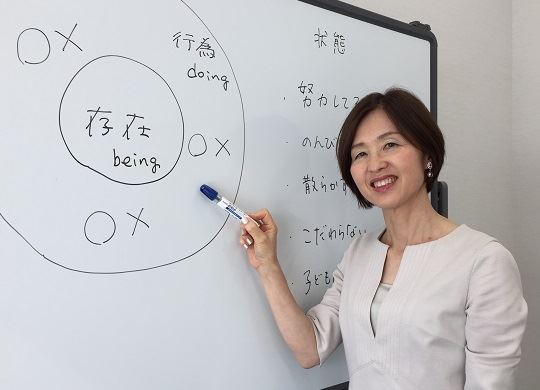 ○×
行為
doing
存在
being
○×
○×
状態
・努力して
・のんび
・散らか
・こだわらない
・子ども